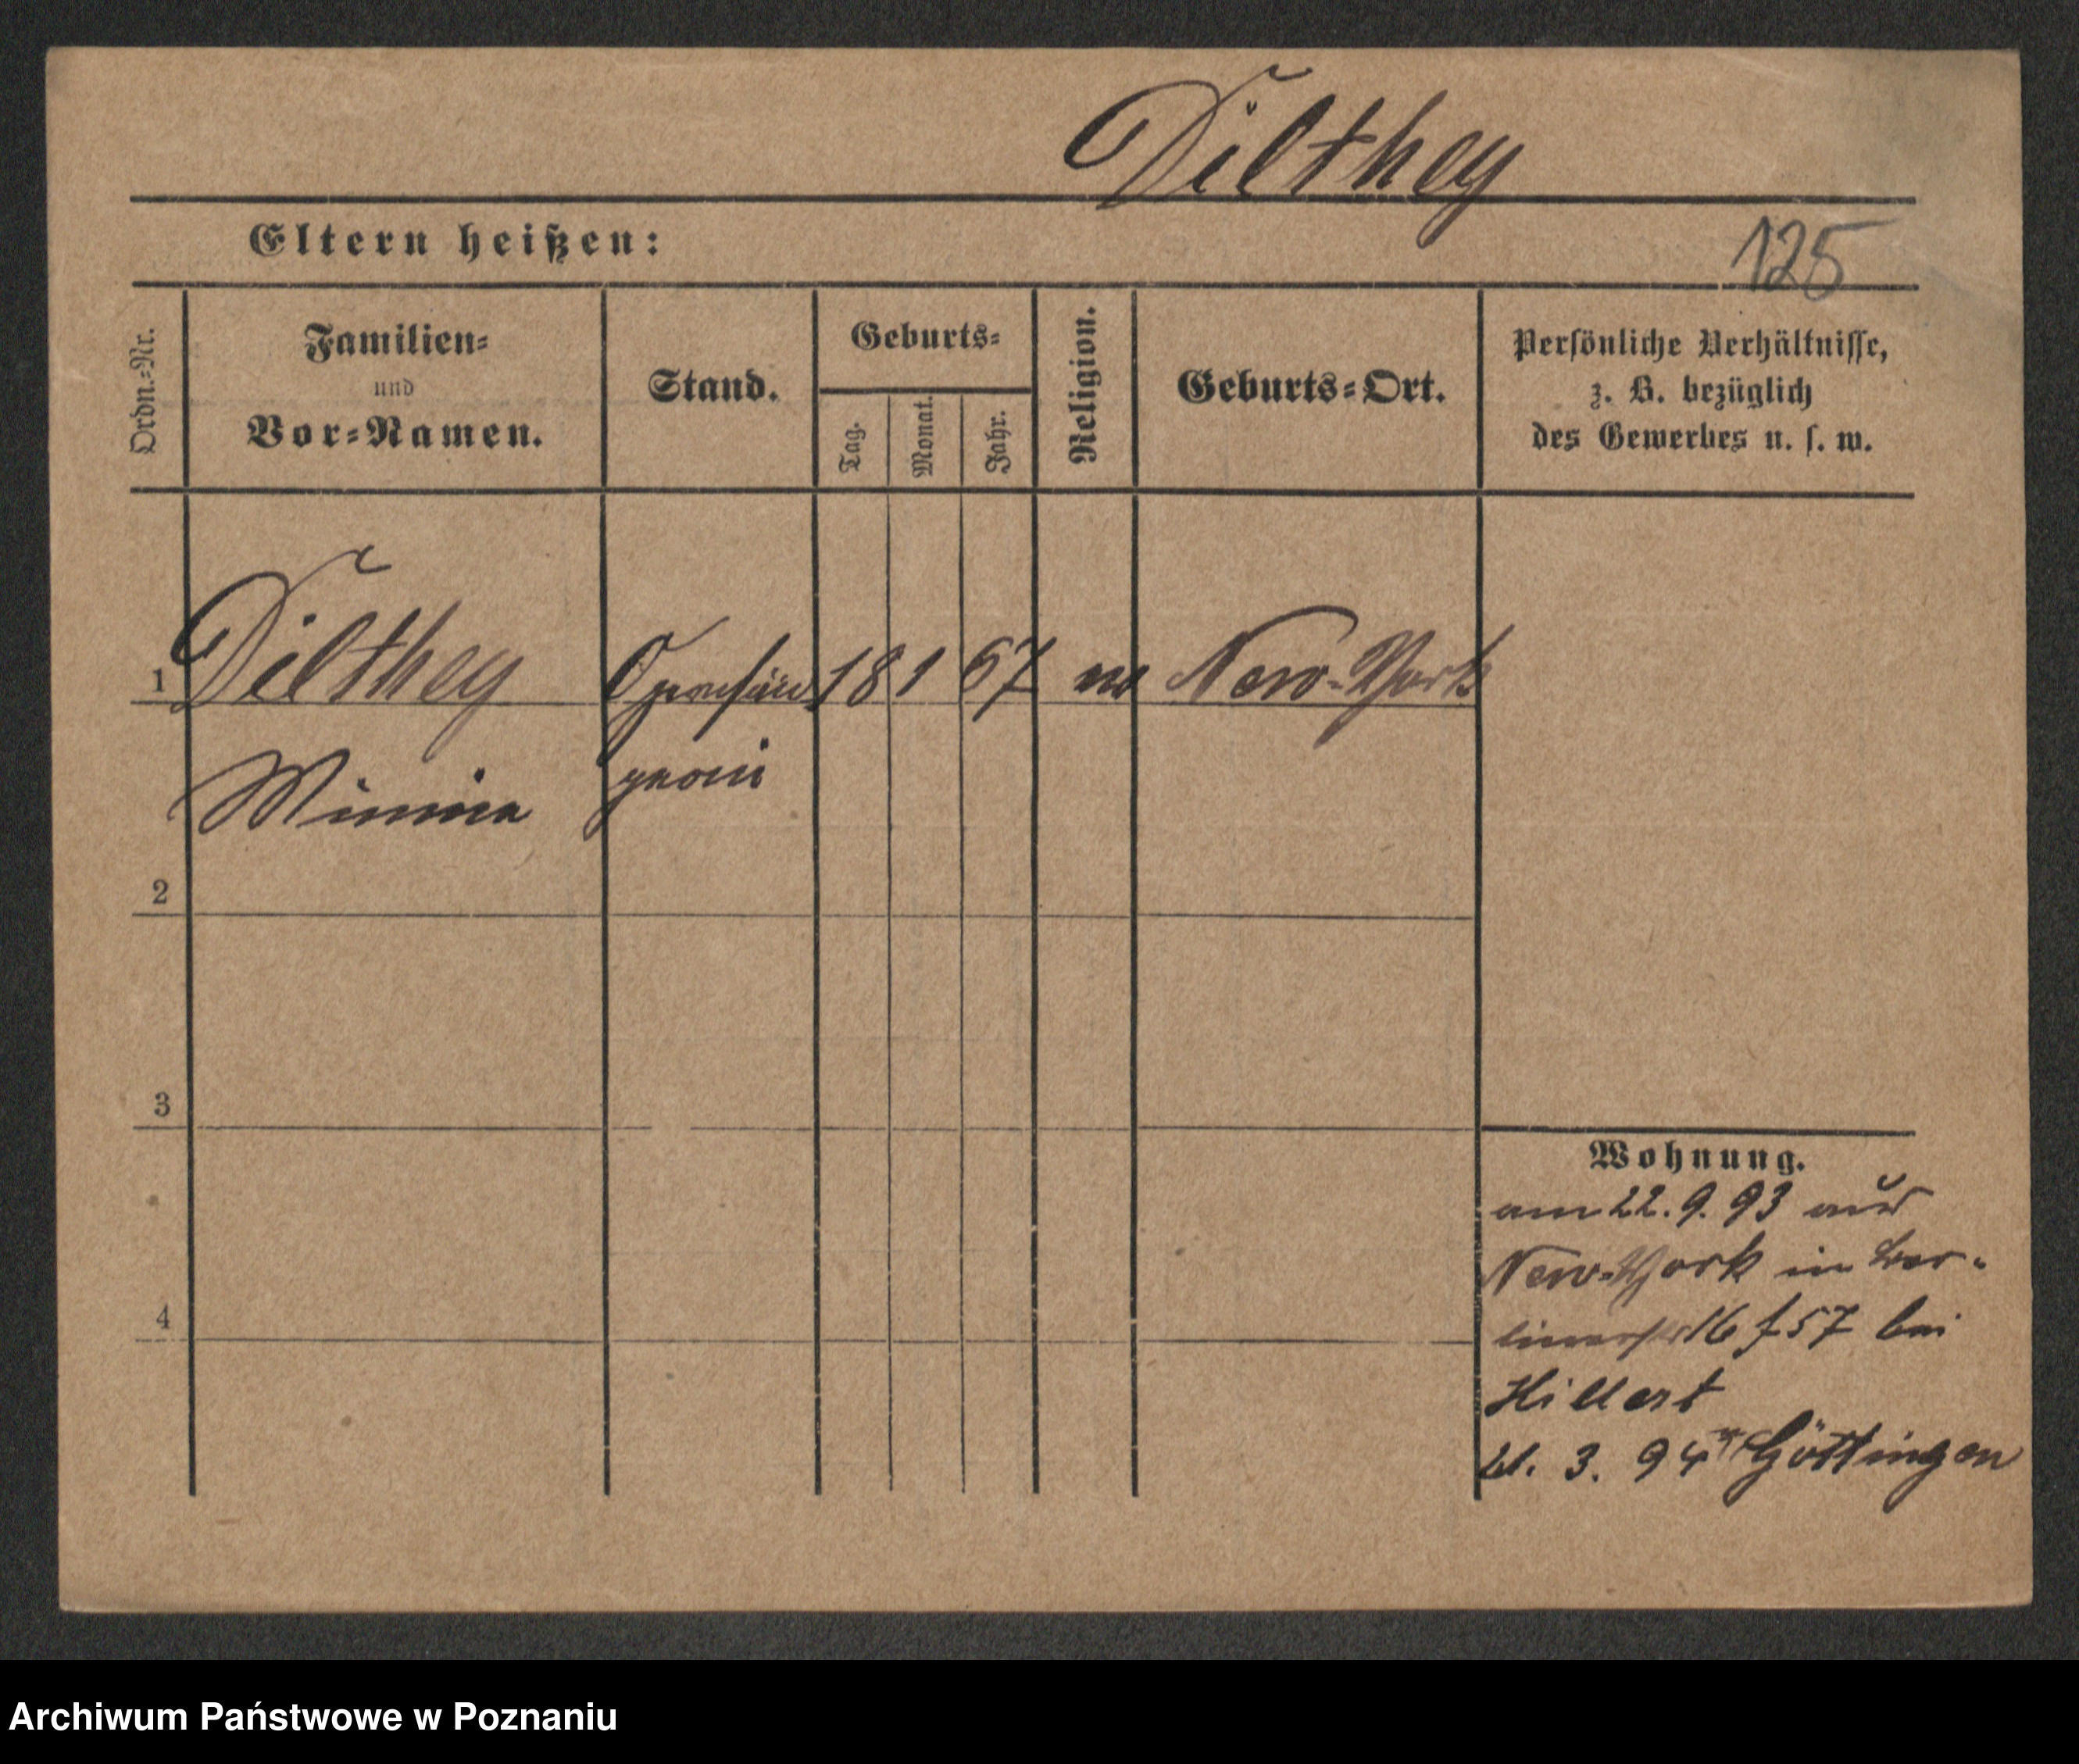 Dilthey
Eltern heißen:
125
Ordn.-Nr.
Familien-
und
Vor-Namen.
Stand.
Geburts-
Tag.
Monat.
Jahr.
Religion.
Geburts-Ort.
Persönliche Verhältnisse,
z. B. bezüglich
des Gewerbes u. s. w.
1 Dilthey Opernsän 18 1 67 New-York
Minnie gerin
2
3
4
Wohnung.
am 22. 9. 93 aus
New-York in Ber-
linerstr 16 f 57 bei
Hillert
3. 94 Göttingen
Archiwum Państwowe w Poznaniu